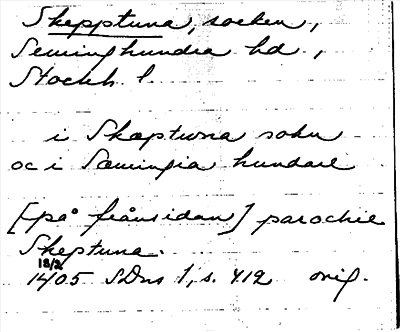 Skepptuna, socken,
Seminghundra hd.,
Stockh. l.
i Skæptuna sokn
oc i Sæmingia hundare
[på frånsidan] parochie
Skeptuna.
18/2
1405 SDns 1, s. 412 orig.